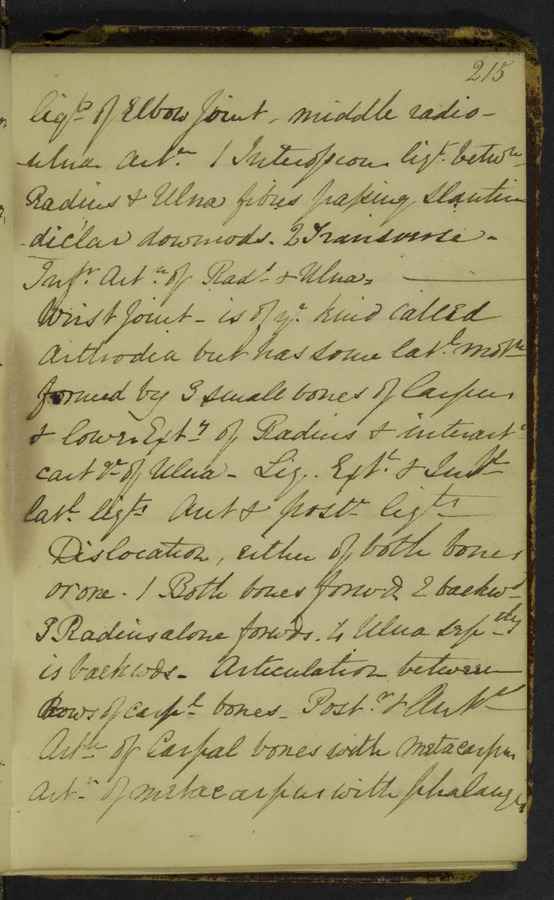 215
ligts of Elbow Joint - middle radio-
-ulna Artn 1 Interosseous ligt. betwn
Radius & Ulna fibres passing slantin
-diclar downwds. 2 Transverse -
Infr. Artn of Rads & Ulna -
Wrist Joint - is of ye. kind called
Arthrodia but has some latl. motn
formed by 3 small bones of Carpus
& lower Exty of Radius & interart
cart of Ulna - Lig. Extl. & Intl
latl. ligts Ant & postr ligts
Dislocation, either of both bones
or one. 1 Both bones forwd. 2 backwd
3 Radius alone forwds. 4 Ulna
is backwds - Articulation between
Rows of carpl bones - Postr. & Antr
Artn of Carpal bones with metacarpus
Artn of metacarpus with phalanges